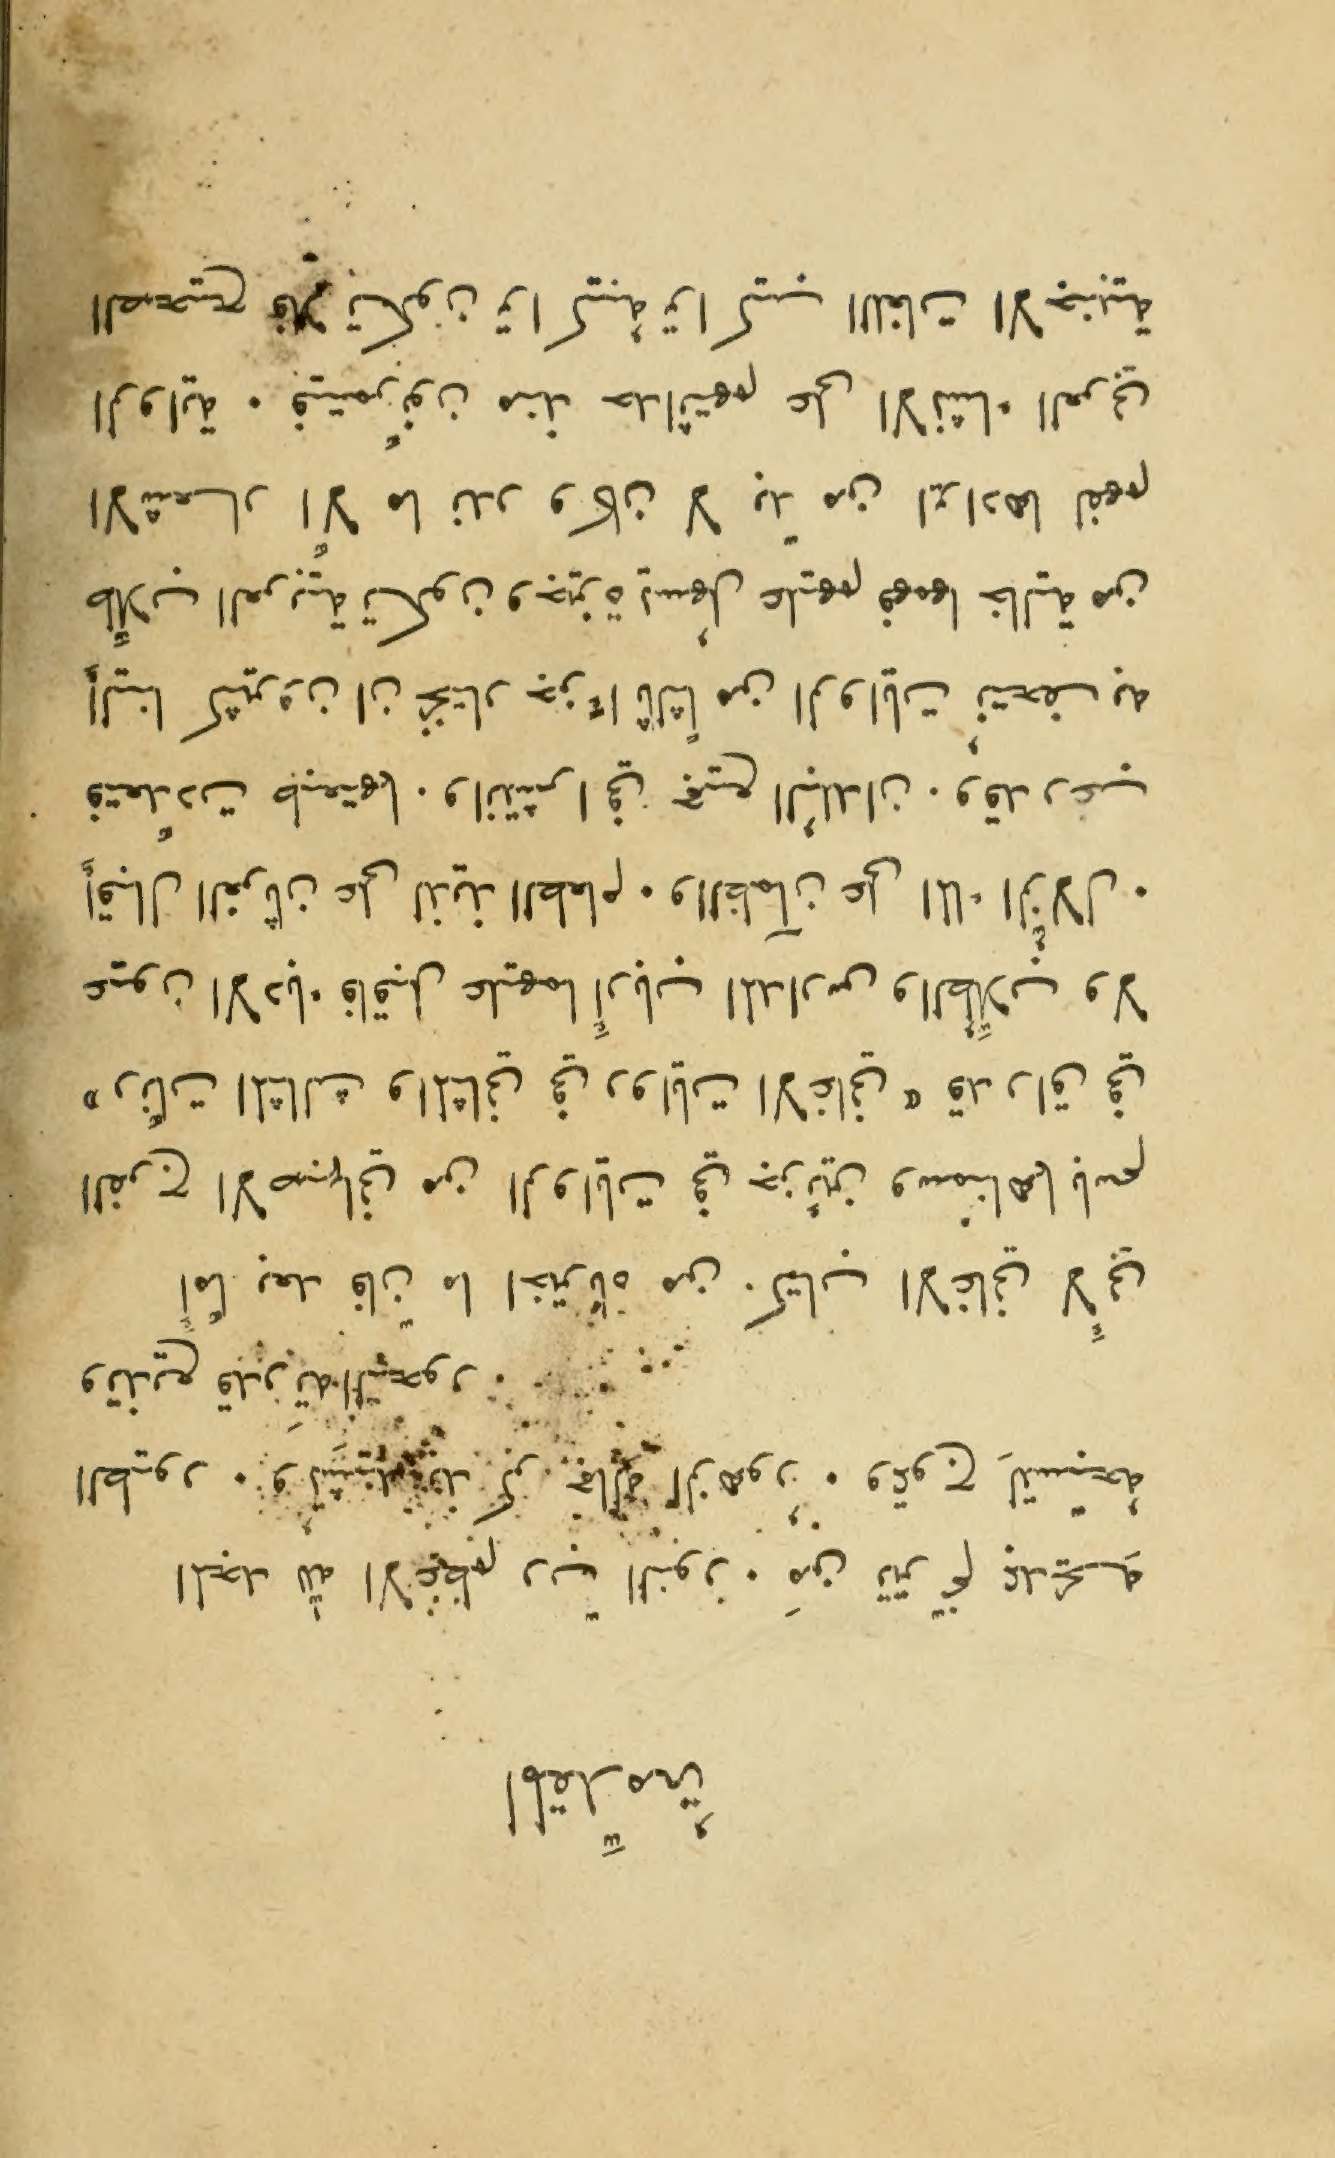 المقدّمةُ
الحمد للهِ الاعظم ربّ النور . مَن ترنّم بمدحـهِ
الطيور . وتُنشد بذكر جلالهِ الزهورُ . وتموج بتسبيحهِ
وبديع قدرته البحور .
أمّا بعد فانّ ما اخترناه من كتاب الاغاني لأبي
الفرج الاصبهاني من الروايات في جزئين وسمناهما باسم
« رنّات المثالث والمثاني في روايات الاغاني » قد راق في
عيون الادباء فاقبل عليهما أرباب المدارس والطلّاب ولا
إقبال الغرثان على لذيذ الطعام . والظمآن على الماء الزُلال .
فتعدّدت طبعتهما . وانتشرا في جميع البُلدان . وقد رغب
إلينا كثيرون ان نختار جزءًا ثالثًا من الروايات نُتحف به
طلّاب العربية تكون وجيزة يسهُل عليهم فهمها خالية من
الاشعـار إلّا ما ندر وكان لا بدّ من ايرادها لفهم
الرواية . فيتمرّنون منذ حداثتهم على الانشاء العربي
الصحيح فلا تكون تراكيبهُ تراكيب اللغات الاجنبية